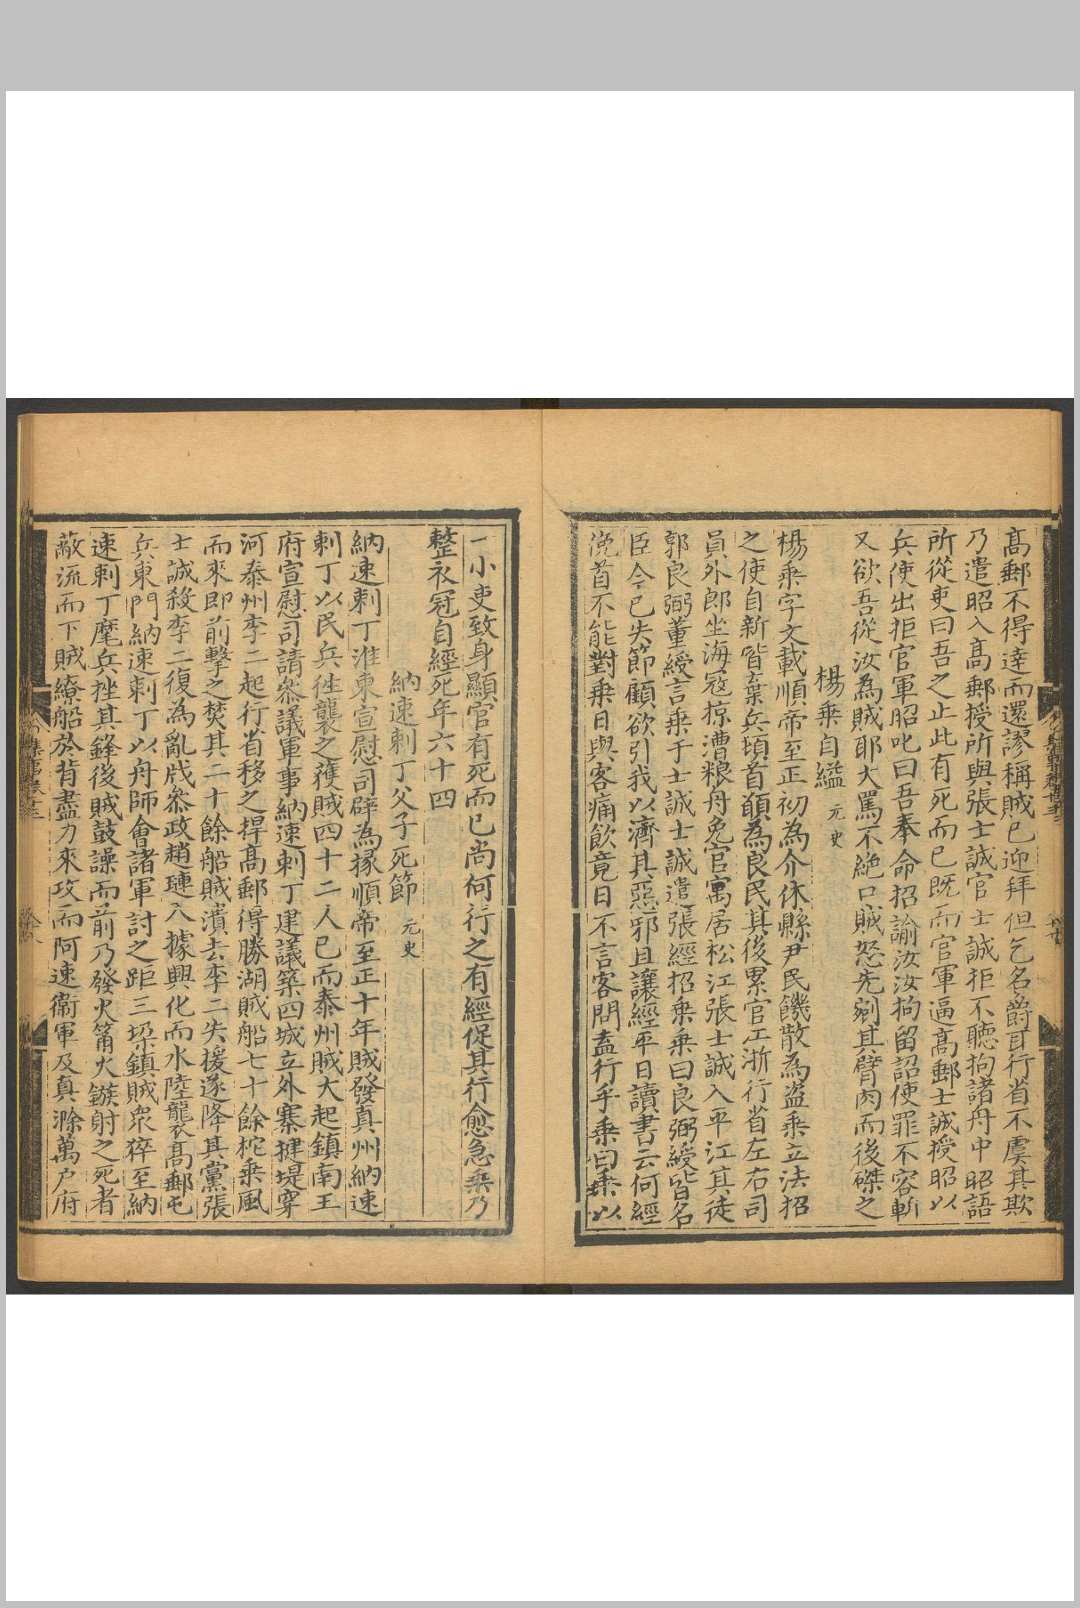 高郵不得達而還謬稱賊已迎拜但乞名爵耳行省不虞其欺
乃遣昭入高郵授所與張士誠官士誠拒不聽拘諸舟中昭語
所從吏曰吾之止此有死而已既而官軍逼高郵士誠授昭以
兵使出拒官軍昭叱曰吾奉命招諭汝汝拘留詔使罪不容斬
又欲吾從汝為賊耶大罵不絕口賊怒先剮其臂肉而後磔之
楊乘自縊 元史
楊乘字文載順帝至正初為介休縣尹民饑散為盜乘立法招
之使自新皆棄兵頓首願為良民其後累官江浙行省左右司
員外郎坐海寇掠漕粮舟免官寓居松江張士誠入平江其徒
郭良弼董綬言乘于士誠士誠遣張經招乘乘曰良弼綬皆名
臣今已失節顧欲引我以濟其惡邪且讓經平日讀書云何經
俛首不能對乘日與客痛飲竟日不言客問盍行乎乘曰乘以
一小吏致身顯官有死而已尚何行之有經促其行愈急乘乃
整衣冠自經死年六十四
納速剌丁父子死節 元史
納速剌丁淮東宣慰司辟為掾順帝至正十年賊發真州納速
剌丁以民兵徃襲之獲賊四十二人已而泰州賊大起鎮南王
府宣慰司請叅議軍事納速剌丁建議築四城立外寨揵堤穿
河泰州李二起行省移之捍高郵得勝湖賊船七十餘柁乘風
而來即前擊之焚其二十餘船賊潰去李二失援遂降其黨張
士誠殺李二復為亂戕叅政趙璉入據興化而水陸襲高郵屯
兵東門納速剌丁以舟師會諸軍討之距三垜鎮賊衆猝至納
速剌丁麾兵挫其鋒後賊鼓譟而前乃發火筩火鏃射之死者
蔽流而下賊繚船於背盡力來攻而阿速衞軍及真滁萬户府